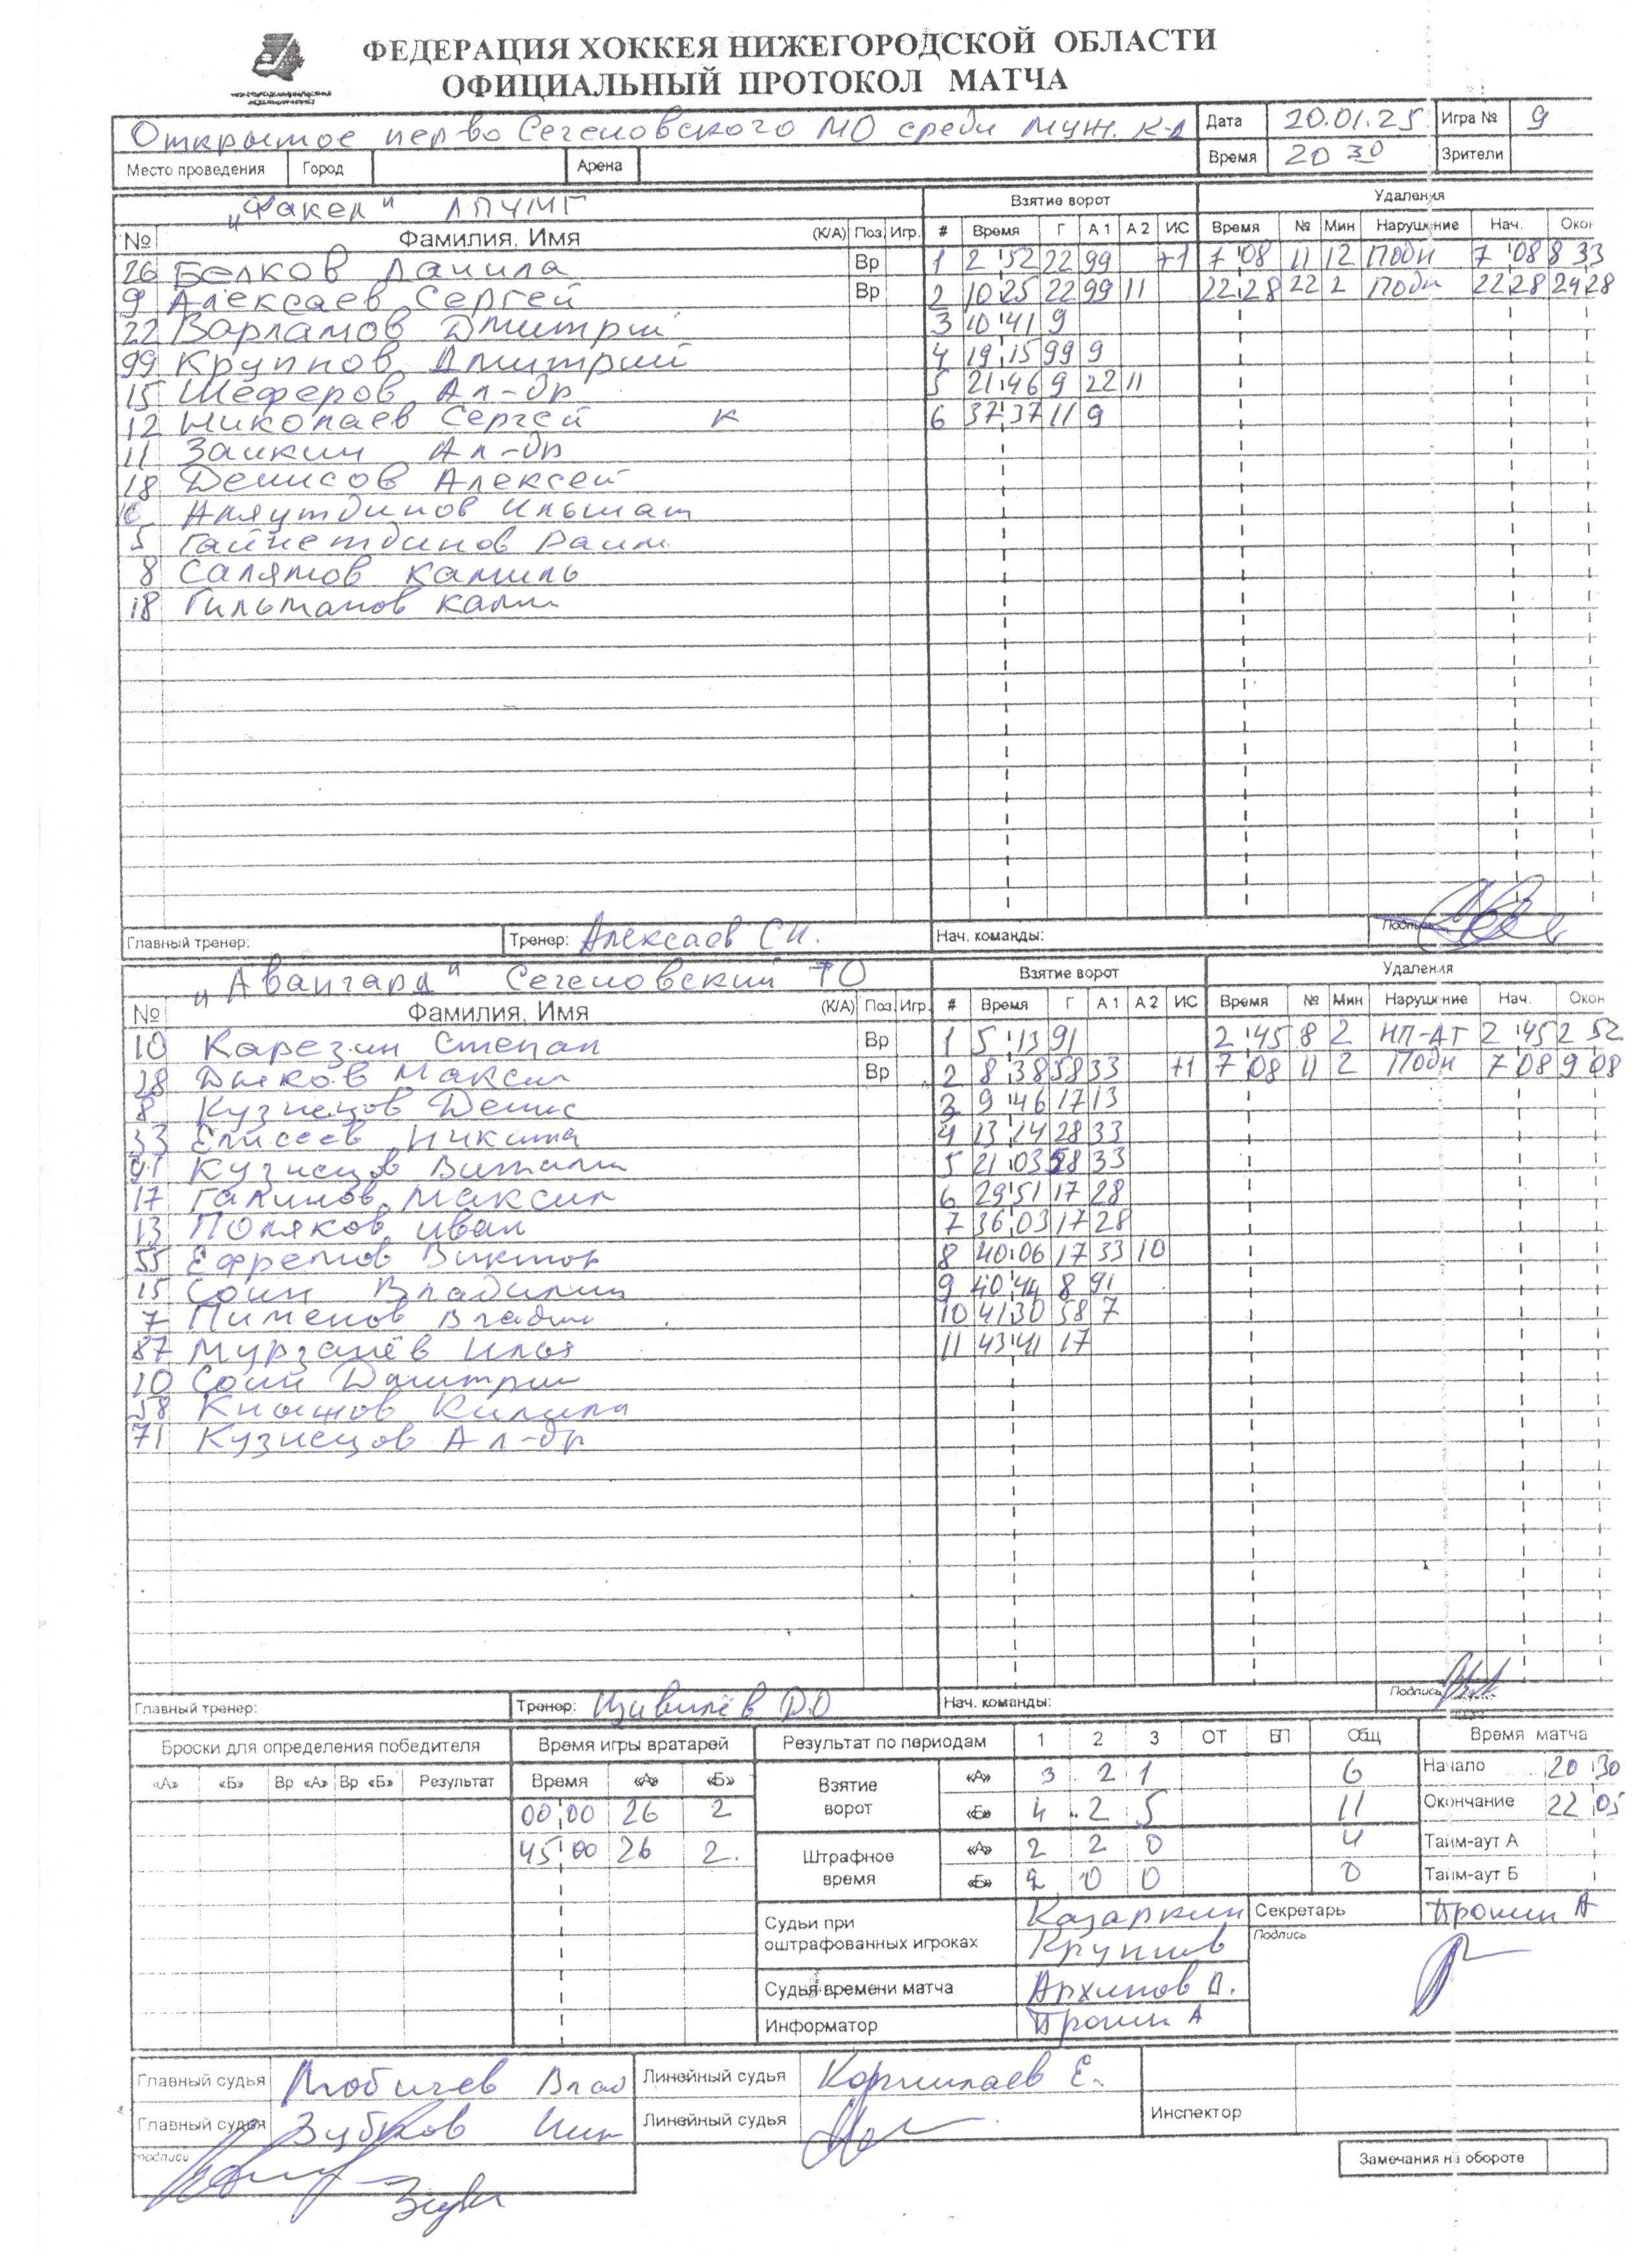 ФЕДЕРАЦИЯ ХОККЕЯ НИЖЕГОРОДСКОЙ ОБЛАСТИ
ОФИЦИАЛЬНЫЙ ПРОТОКОЛ МАТЧА
Открытое пер-во Сеченовского МО среди муж. к-д Дата 20.01.25 Игра № 9
Место проведения Город Арена Время 20 30 Зрители
"Факел" ЛПУМГ Взятие ворот Удаления
№ Фамилия, Имя (К/А) Поз. Игр. # Время Г А 1 А 2 ИС Время № Мин Нарушение Нач. Окон
26 Белков Данила Вр 1 2 52 22 99 +1 7 08 11 12 Подн 7 08 8 33
9 Алексаев Сергей Вр 2 10 25 22 99 11 22 28 22 2 Подн 22 28 24 28
22 Варламов Дмитрий 3 10 41 9
99 Крупнов Дмитрий 4 19 15 99 9
15 Шеферов Ал-др 5 21 46 9 22 11
12 Николаев Сергей К 6 37 37 11 9
11 Заикин Ал-др
18 Денисов Алексей
Аляутдинов Ильшат
5 Гайнетдинов Раим
8 Салямов Камиль
18 Гильманов Калим
Главный тренер: Тренер: Алексаев С.И. Нач. команды: Подпись
"Авангард" Сеченовский ТО Взятие ворот Удаления
№ Фамилия, Имя (К/А) Поз. Игр. # Время Г А 1 А 2 ИС Время № Мин Нарушение Нач. Окон
10 Карезин Степан Вр 1 5 13 91 2 45 8 2 НП-АТ 2 45 2 52
28 Дыков Максим Вр 2 8 38 58 33 +1 7 08 11 2 Подн 7 08 9 08
8 Кузнецов Денис 3 9 46 17 13
33 Елисеев Никита 4 13 14 28 33
91 Кузнецов Виталий 5 21 03 58 33
17 Галинов Максим 6 29 51 17 28
13 Поляков Иван 7 36 03 17 28
55 Ефремов Виктор 8 40 06 17 33 10
15 Соин Владимир 9 40 44 8 91
7 Пименов Вladим 10 41 30 58 7
87 Мурзанёв Илья 11 43 41 17
10 Соин Дмитрий
58 Кнышов Кирилл
71 Кузнецов Ал-др
Главный тренер: Тренер: Цивилёв Д.О Нач. команды: Подпись
Броски для определения победителя Время игры вратарей Результат по периодам 1 2 3 ОТ БП Общ Время матча
«А» «Б» Вр «А» Вр «Б» Результат Время «А» «Б» Взятие ворот «А» 3 2 1 6 Начало 20 30
00 00 26 2 «Б» 4 2 5 11 Окончание 22 05
45 00 26 2. Штрафное время «А» 2 2 0 4 Тайм-аут А
«Б» 2 0 0 0 Тайм-аут Б
Судьи при оштрафованных игроках Казаркин Секретарь Пронин А
Крупнов Подпись
Судья времени матча Архипов Д.
Информатор Пронин А
Главный судья Любичев Влад Линейный судья Корнилаев Е.
Главный судья Зубков Ник Линейный судья Инспектор
подписи Замечания на обороте